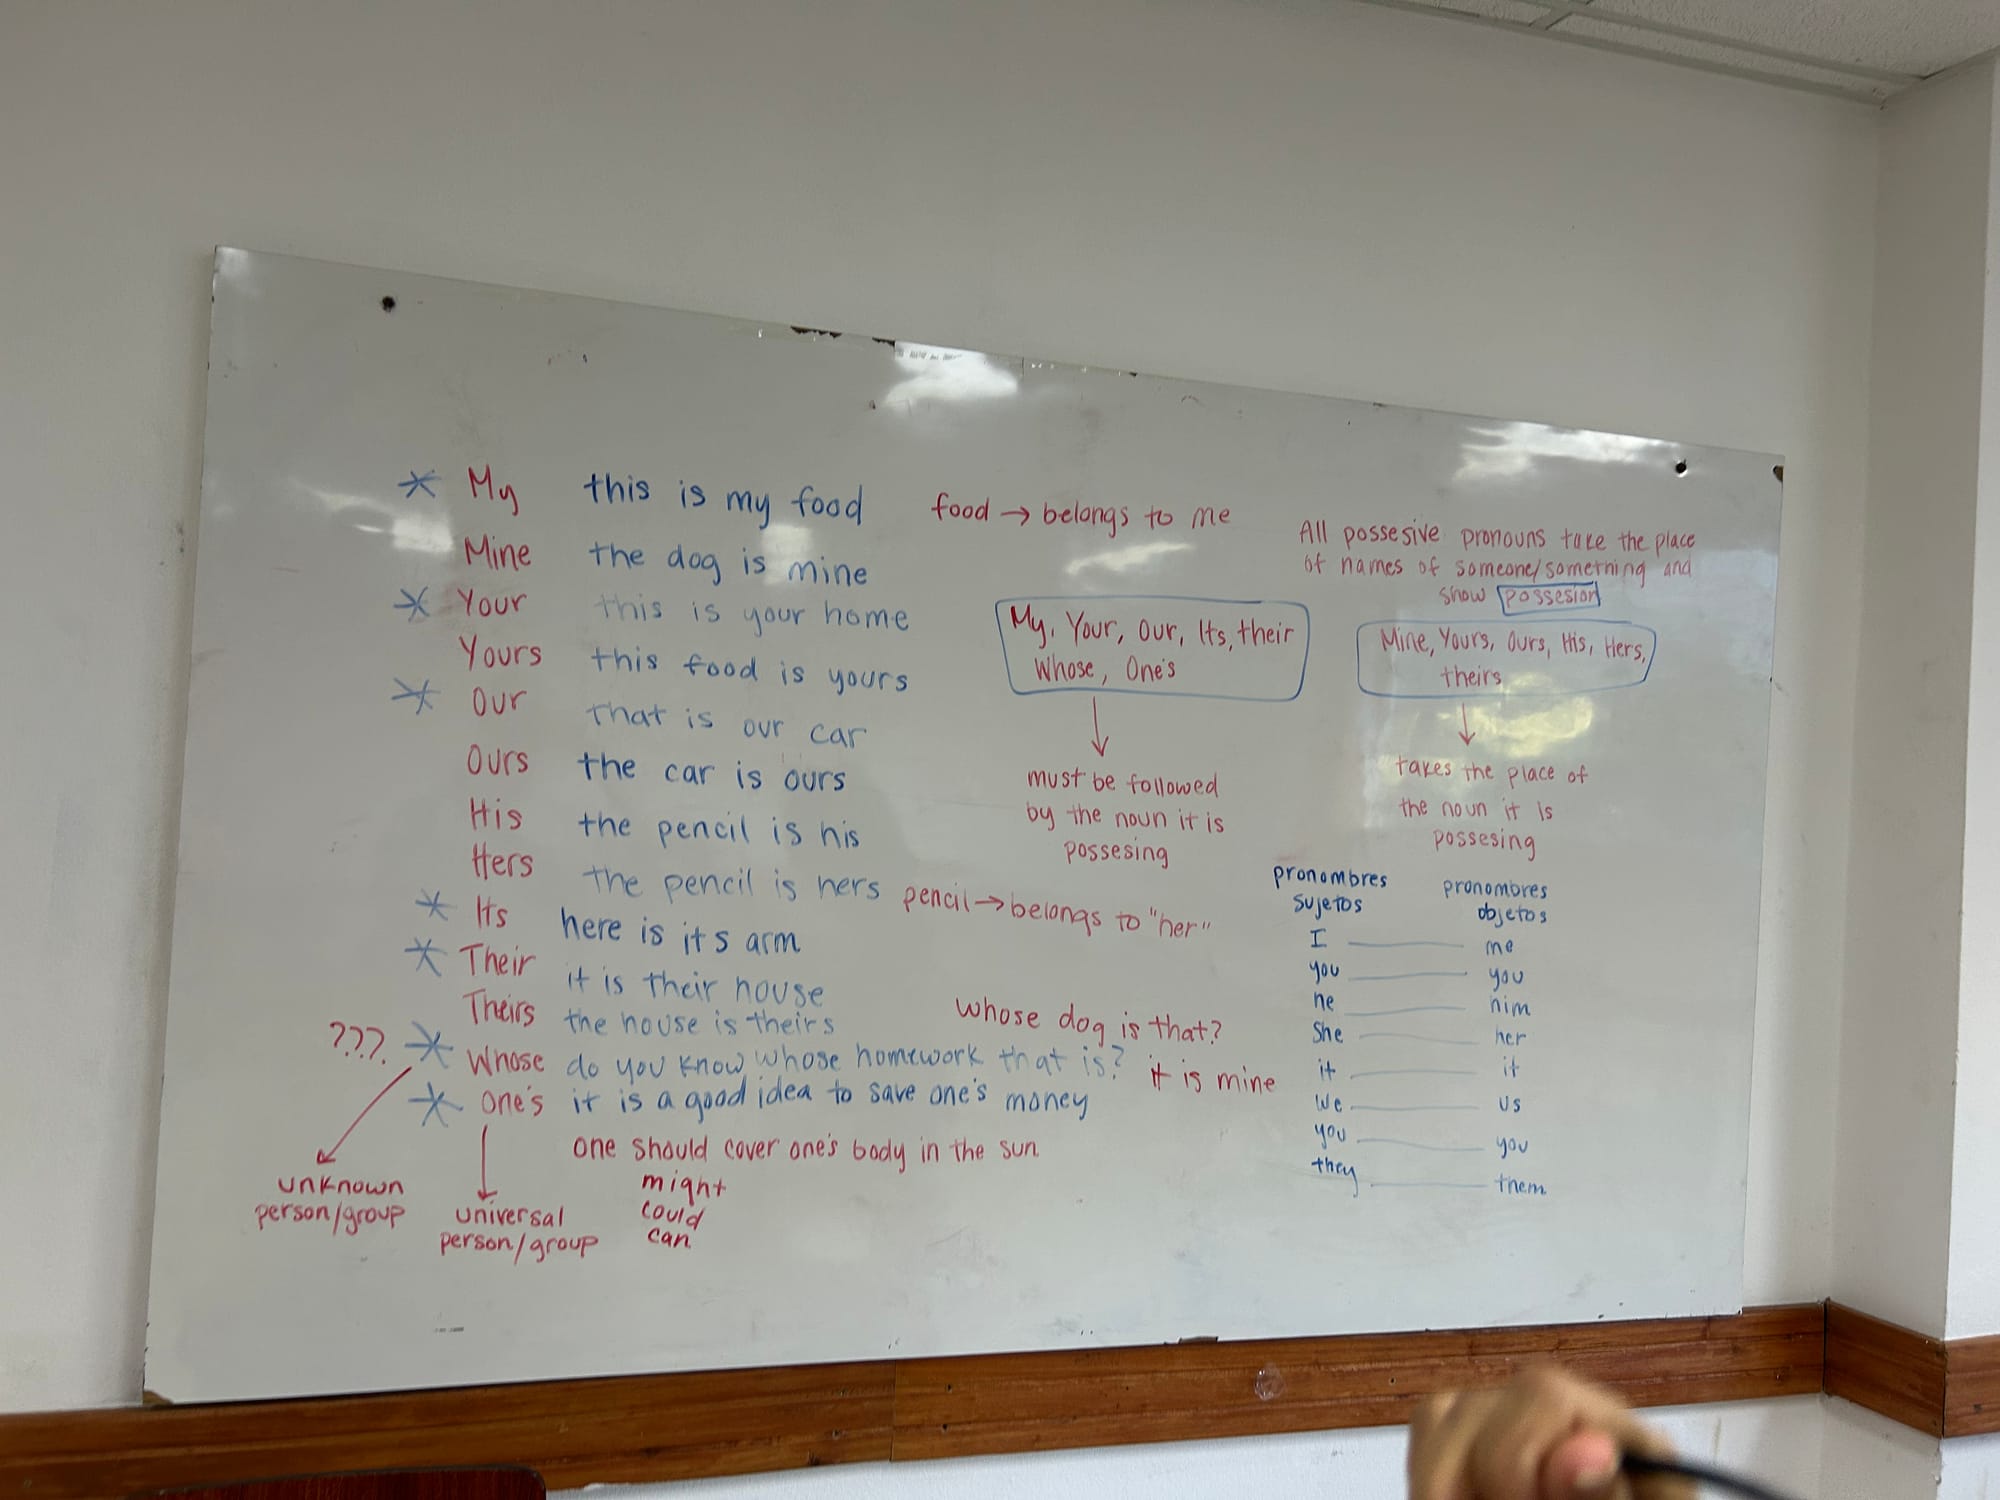 My this is my food food → belongs to me
Mine the dog is mine
Your this is your home
Yours this food is yours
Our that is our car
Ours the car is ours
His the pencil is his
Hers the pencil is hers pencil → belongs to "her"
Its here is its arm
Their it is their house
Theirs the house is theirs
??? Whose do you know whose homework that is?
One's it is a good idea to save one's money
one should cover one's body in the sun
might
could
can
unknown
person/group
universal
person/group
whose dog is that?
it is mine
My, Your, Our, Its, their
Whose, One's
must be followed
by the noun it is
possesing
All possesive pronouns take the place
of names of someone/something and
show possesion
Mine, Yours, Ours, His, Hers,
theirs
takes the place of
the noun it is
possesing
pronombres
sujetos
pronombres
objetos
I me
you you
he him
She her
it it
We us
you you
they them